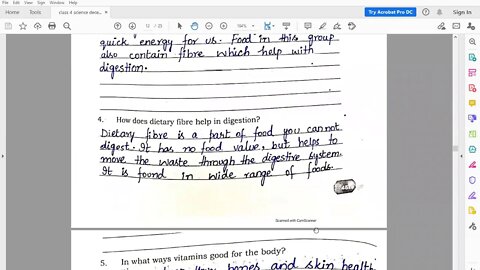 class 4 science dece...
Try Acrobat Pro DC
Sign In
quick energy for us. Food in this group
also contain fibre which help with
digestion.
4. How does dietary fibre help in digestion?
Dietary fibre is a part of food you cannot
digest. It has no food value, but helps to
move the waste through the digestive system.
It is found in wide range of foods.
Scanned with CamScanner
5. In what ways vitamins good for the body?
bones and skin health